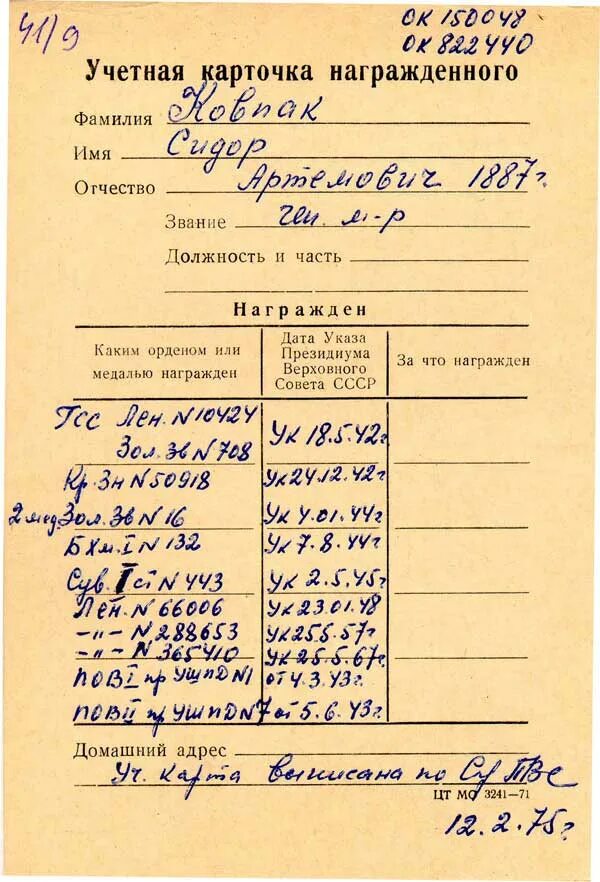 41/9
ОК 150048
ОК 822440
Учетная карточка награжденного
Фамилия Ковпак
Имя Сидор
Отчество Артемович 1887г.
Звание ген. м-р
Должность и часть
Награжден
Каким орденом или медалью награжден
Дата Указа Президиума Верховного Совета СССР
За что награжден
ГСС Лен. N 10424
Зол. Зв N 708 Ук 18.5.42г
Кр. Зн N 50918 Ук 24.12.42г
2 мед. Зол. Зв N 16 Ук 4.01.44г
БХм. I N 132 Ук 7.8.44г
Сув. I ст N 443 Ук 2.5.45г
Лен. N 66006 Ук 23.01.48
-"- N 288653 Ук 25.6.57г
-"- N 365410 Ук 25.5.67г
ПОВ I пр УШПД N1 от 4.3.43г
ПОВ II пр УШПД N7 от 5.6.43г
Домашний адрес
Уч. карта выписана по Су ПВС
ЦТ МО 3241—71
12.2.75г